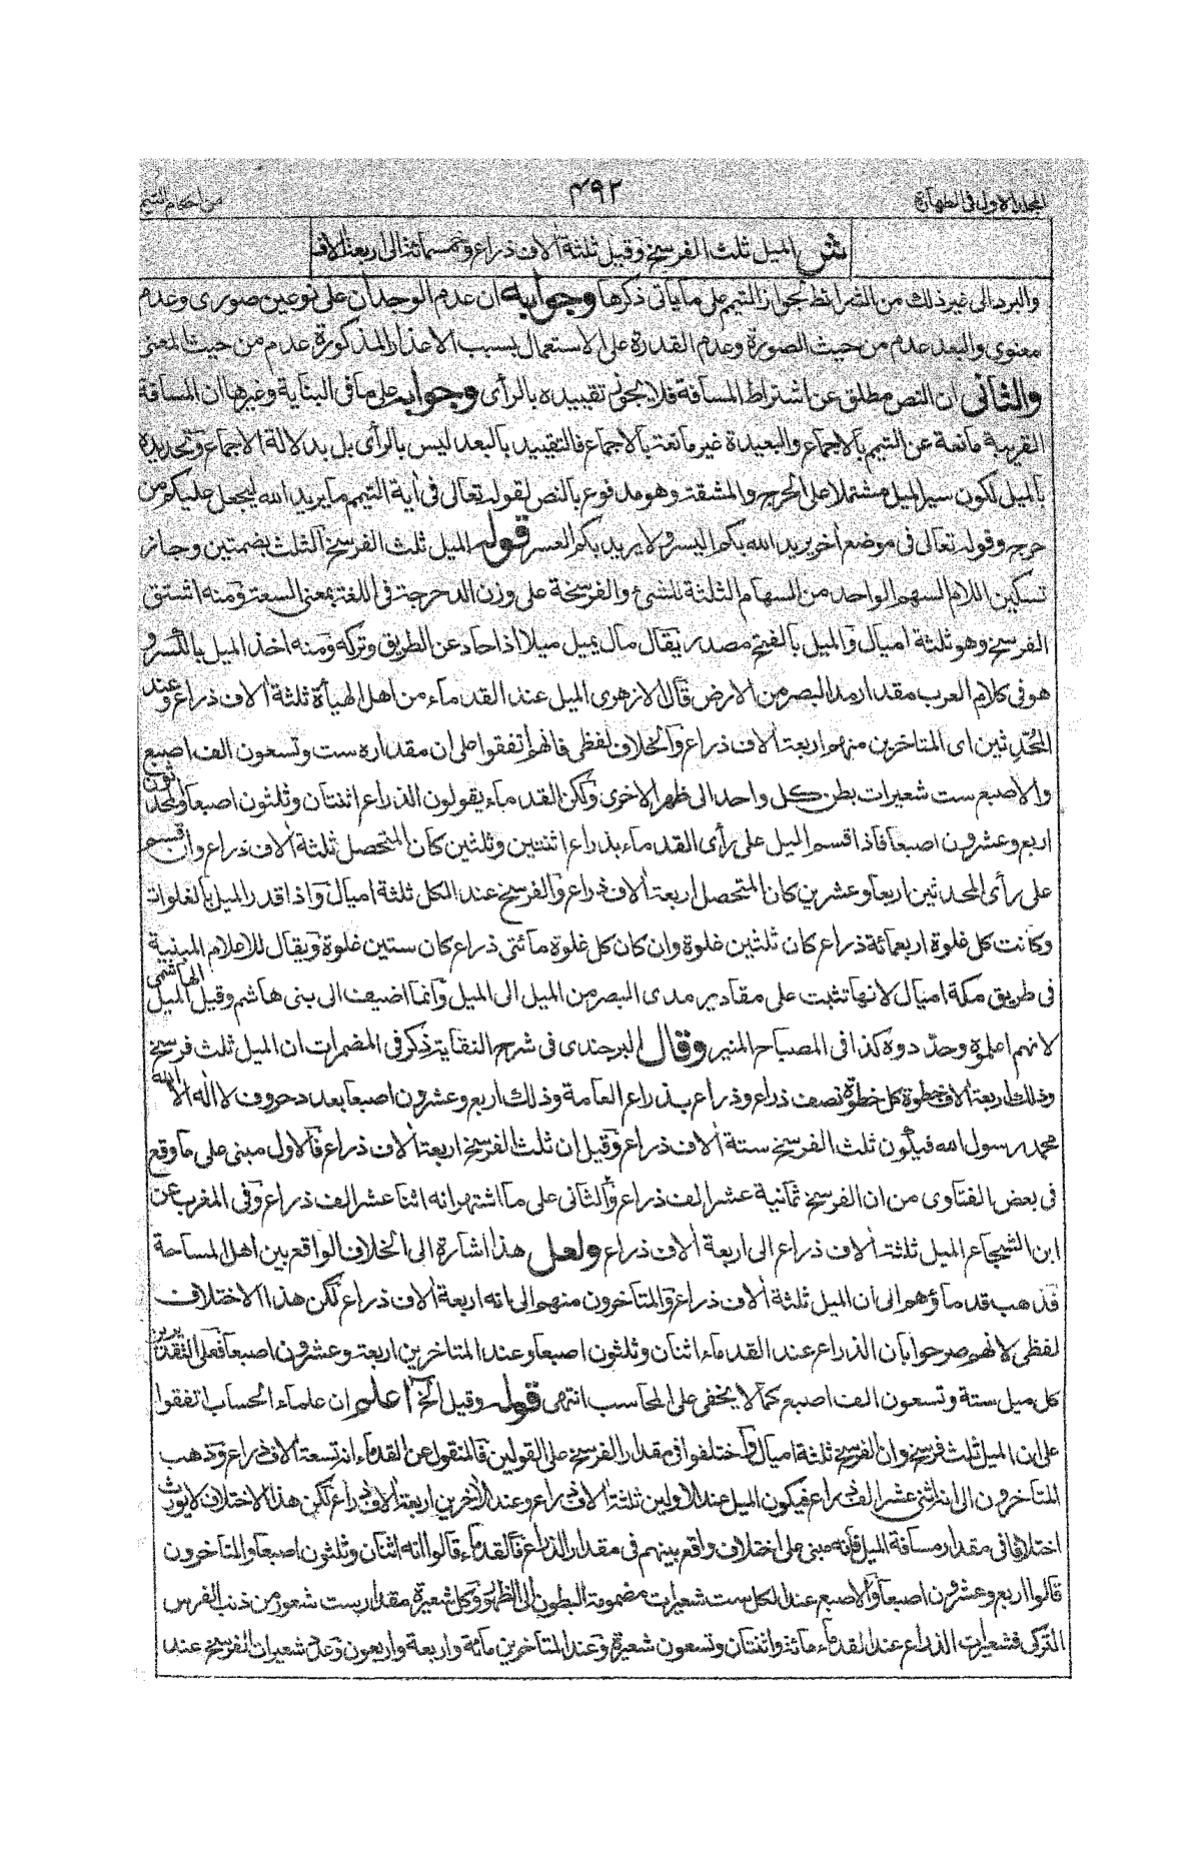 المجلد الاول فى الطهارة ٤٩٢ من احكام التيمم
ش الميل ثلث الفرسخ وقيل ثلثة الاف ذراع وخمسمائة الى اربعة الاف
والبرد الى غير ذلك من الشرائط لجواز التيمم على ما ياتى ذكرها وجوابه ان عدم الوجدان على نوعين صورى وعدم
معنوى والبعد عدم من حيث الصورة وعدم القدرة على الاستعمال بسبب الاعذار المذكورة عدم من حيث المعنى
والثانى ان النص مطلق عن اشتراط المسافة فلا يجوز تقييده بالرأى وجوابه على ما فى البناية وغيرها ان المسافة
القريبة مانعة عن التيمم بالاجماع والبعيدة غير مانعة بالاجماع فالتقييد بالبعد ليس بالرأى بل بدلالة الاجماع وتحديده
بالميل لكون سير الميل مشتملا على الحرج والمشقة وهو مدفوع بالنص لقوله تعالى فى اية التيمم ما يريد الله ليجعل عليكم من
حرج وقوله تعالى فى موضع اخر يريد الله بكم اليسر ولا يريد بكم العسر قوله الميل ثلث الفرسخ الثلث بضمتين وجاز
تسكين اللام السهم الواحد من السهام الثلثة للشئ والفرسخة على وزن الدحرجة فى اللغة بمعنى السعة ومنه اشتق
الفرسخ وهو ثلثة اميال والميل بالفتح مصدر يقال مال يميل ميلا اذا حاد عن الطريق وتركه ومنه اخذ الميل بالكسر و
هو فى كلام العرب مقدار مد البصر من الارض قال الازهرى الميل عند القدماء من اهل الهيأة ثلثة الاف ذراع وعند
المحدثين اى المتاخرين منهم اربعة الاف ذراع والخلاف لفظى فانهم اتفقوا على ان مقداره ست وتسعون الف اصبع
والاصبع ست شعيرات بطن كل واحد الى ظهر الاخرى ولكن القدماء يقولون الذراع اثنتان وثلثون اصبعا والمحدثون
اربع وعشرون اصبعا فاذا قسم الميل على رأى القدماء بذراع اثنتين وثلثين كان المتحصل ثلثة الاف ذراع وان قسم
على رأى المحدثين اربعا وعشرين كان المتحصل اربعة الاف ذراع والفرسخ عند الكل ثلثة اميال واذا قدر الميل بالغلوات
وكانت كل غلوة اربعمائة ذراع كان ثلثين غلوة وان كان كل غلوة مائتى ذراع كان ستين غلوة ويقال للاعلام المبنية
فى طريق مكة اميال لانها تثبت على مقادير مدى البصر من الميل الى الميل وانما اضيف الى بنى هاشم وقيل الميل الهاشمى
لانهم اعلموه وحددوه كذا فى المصباح المنير وقال البرجندى فى شرح النقاية ذكر فى المضمرات ان الميل ثلث فرسخ
وذلك اربعة الاف خطوة كل خطوة نصف ذراع وذراع بذراع العامة وذلك اربع وعشرون اصبعا بعدد حروف لا اله الا الله
محمد رسول الله فيكون ثلث الفرسخ ستة الاف ذراع وقيل ان ثلث الفرسخ اربعة الاف ذراع فالاول مبنى على ما وقع
فى بعض الفتاوى من ان الفرسخ ثمانية عشر الف ذراع والثانى على ما اشتهر انه اثنا عشر الف ذراع وفى المغرب عن
ابن الشجاع الميل ثلثة الاف ذراع الى اربعة الاف ذراع ولعل هذا اشارة الى الخلاف الواقع بين اهل المساحة
فذهب قدماؤهم الى ان الميل ثلثة الاف ذراع والمتاخرون منهم الى انه اربعة الاف ذراع لكن هذا الاختلاف
لفظى لانهم صرحوا بان الذراع عند القدماء اثنان وثلثون اصبعا وعند المتاخرين اربعة وعشرون اصبعا فعلى التقديرين
كل ميل ستة وتسعون الف اصبع كما لا يخفى على المحاسب انتهى قوله وقيل الخ اعلم ان علماء الحساب اتفقوا
على ان الميل ثلث فرسخ وان الفرسخ ثلثة اميال واختلفوا فى مقدار الفرسخ على القولين فالمنقول عن القدماء انه تسعة الاف ذراع وذهب
المتاخرون الى انه اثنى عشر الف ذراع فيكون الميل عند الاولين ثلثة الاف ذراع وعند الاخرين اربعة الاف ذراع لكن هذا الاختلاف لا يورث
اختلافا فى مقدار مسافة الميل فانه مبنى على اختلاف واقع بينهم فى مقدار الذراع فالقدماء قالوا انه اثنان وثلثون اصبعا والمتاخرون
قالوا اربع وعشرون اصبعا والاصبع عند الكل ست شعيرات مضمومة البطون الى الظهور وكل شعيرة مقدار ست شعور من ذنب الفرس
التركى فشعيرات الذراع عند القدماء مائة واثنتان وتسعون شعيرة وعند المتاخرين مائة واربعة واربعون وعدد شعيرات الفرسخ عند